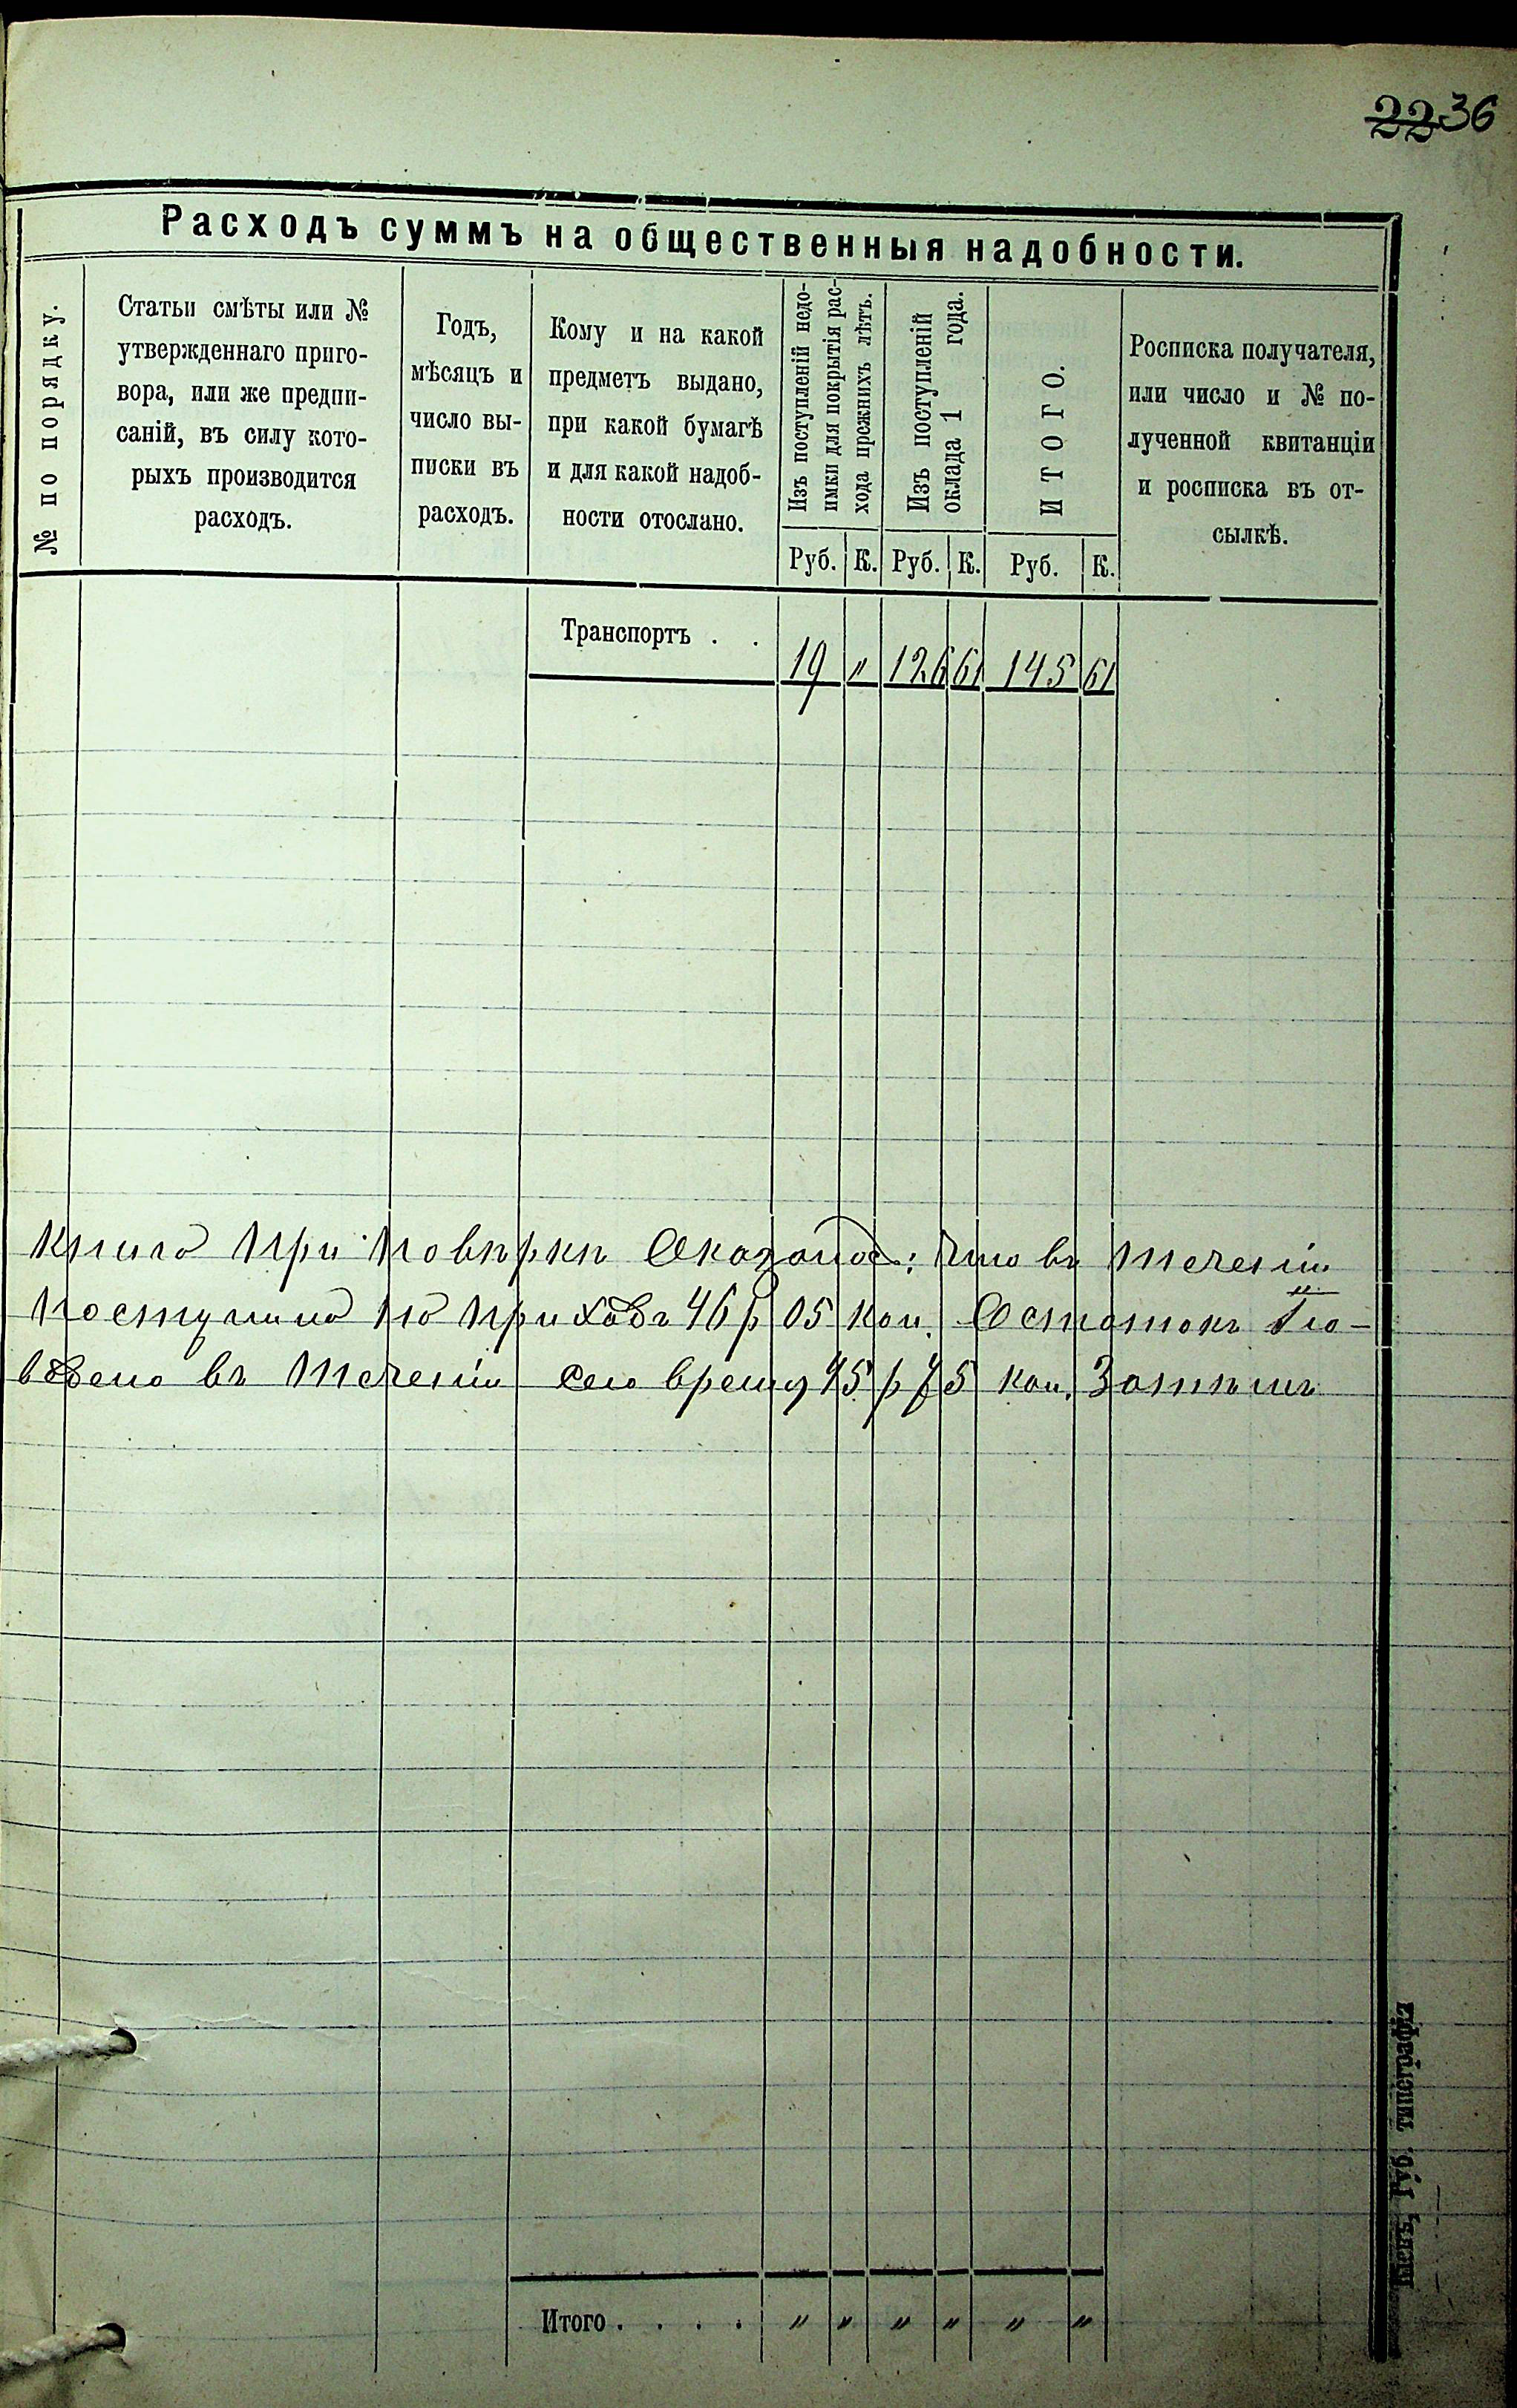 22 36
Расходъ суммъ на общественныя надобности.
№ по порядку.
Статьи смѣты или №
утвержденнаго приго-
вора, или же предпи-
саній, въ силу кото-
рыхъ производится
расходъ.
Годъ,
мѣсяцъ и
число вы-
писки въ
расходъ.
Кому и на какой
предметъ выдано,
при какой бумагѣ
и для какой надоб-
ности отослано.
Изъ поступленій недо-
имки для покрытія рас-
хода прежнихъ лѣтъ.
Изъ поступленій
оклада 1 года.
ИТОГО.
Росписка получателя,
или число и № по-
лученной квитанціи
и росписка въ от-
сылкѣ.
Руб. К. Руб. К. Руб. К.
Транспортъ . . 19 " 126 61 145 61
Книга при повѣрки Оказалос: Что въ течении
поступило по приходъ 46 р 05 коп. Остатокъ
въ течении сего время р 5 коп. Затѣмъ
Итого . . . . " " " " " "
Губ. типографія